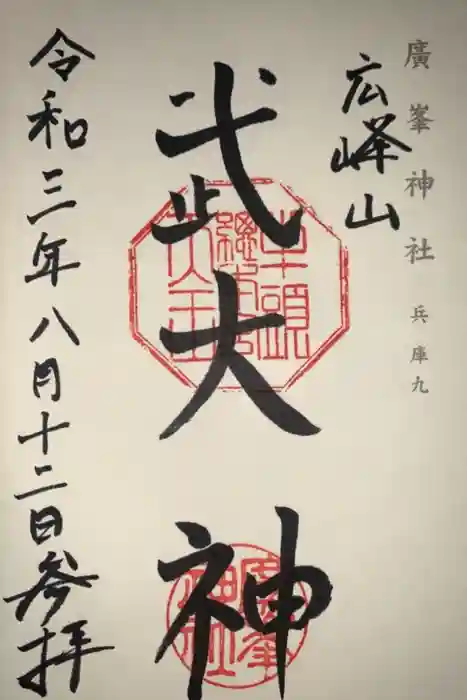 廣峯神社 兵庫九
広峰山
武大神
令和三年八月十二日参拝
牛頭
天王
廣峯
神社